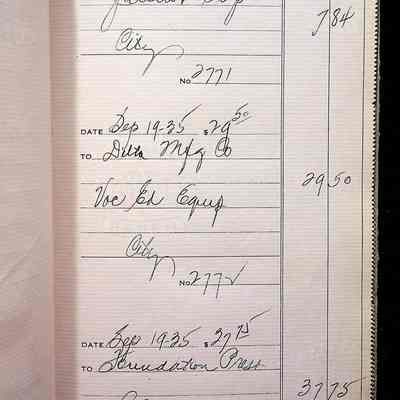 784
City
No 2771
DATE Sep 19-35 $ 29 50
TO Delta Mfg Co
Voc Ed Equip 29 50
City
No 2772
DATE Sep 19-35 $ 37 75
TO Foundation Press
37 75